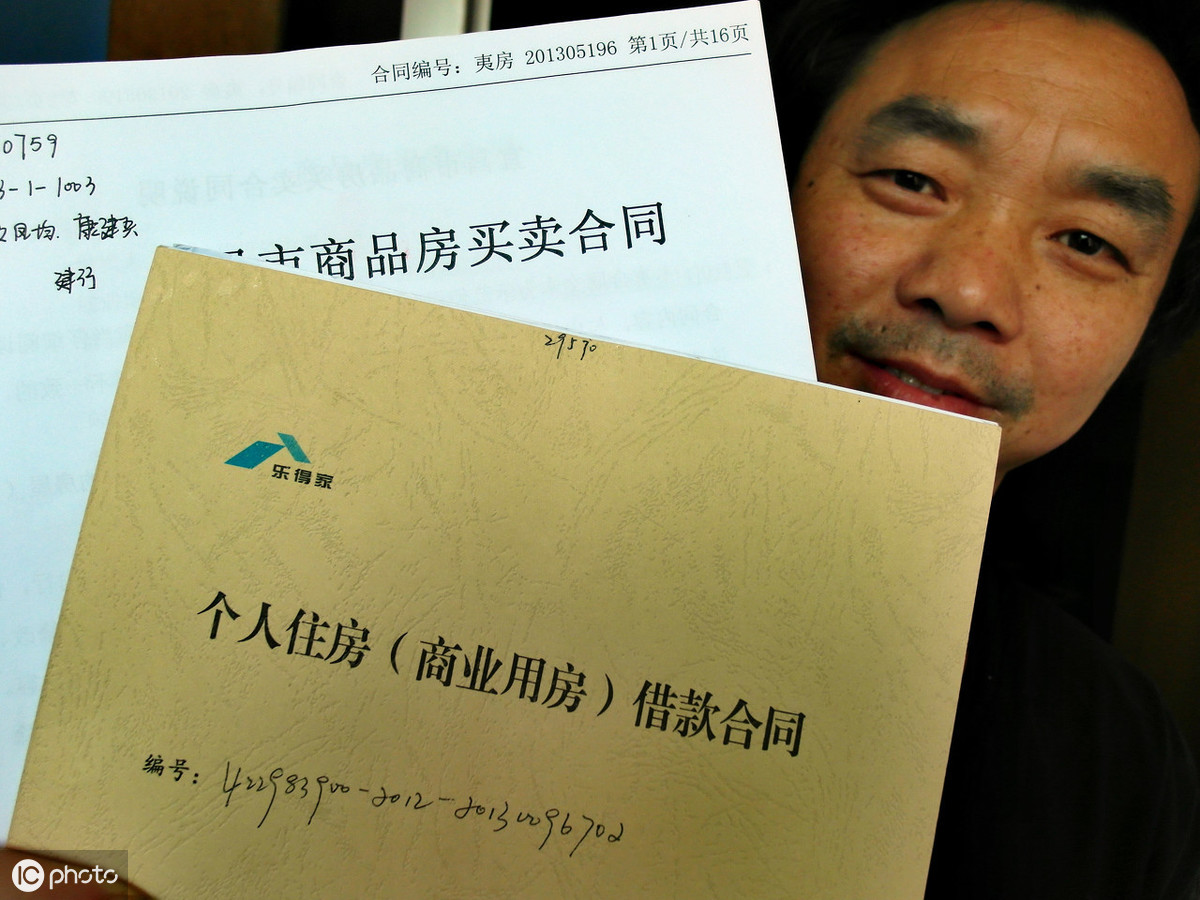 合同编号：夷房 201305196 第1页/共16页
0759
3-1-1003
建行
市商品房买卖合同
29570
乐得家
个人住房（商业用房）借款合同
编号：422983900-2012-20130096702
IC photo